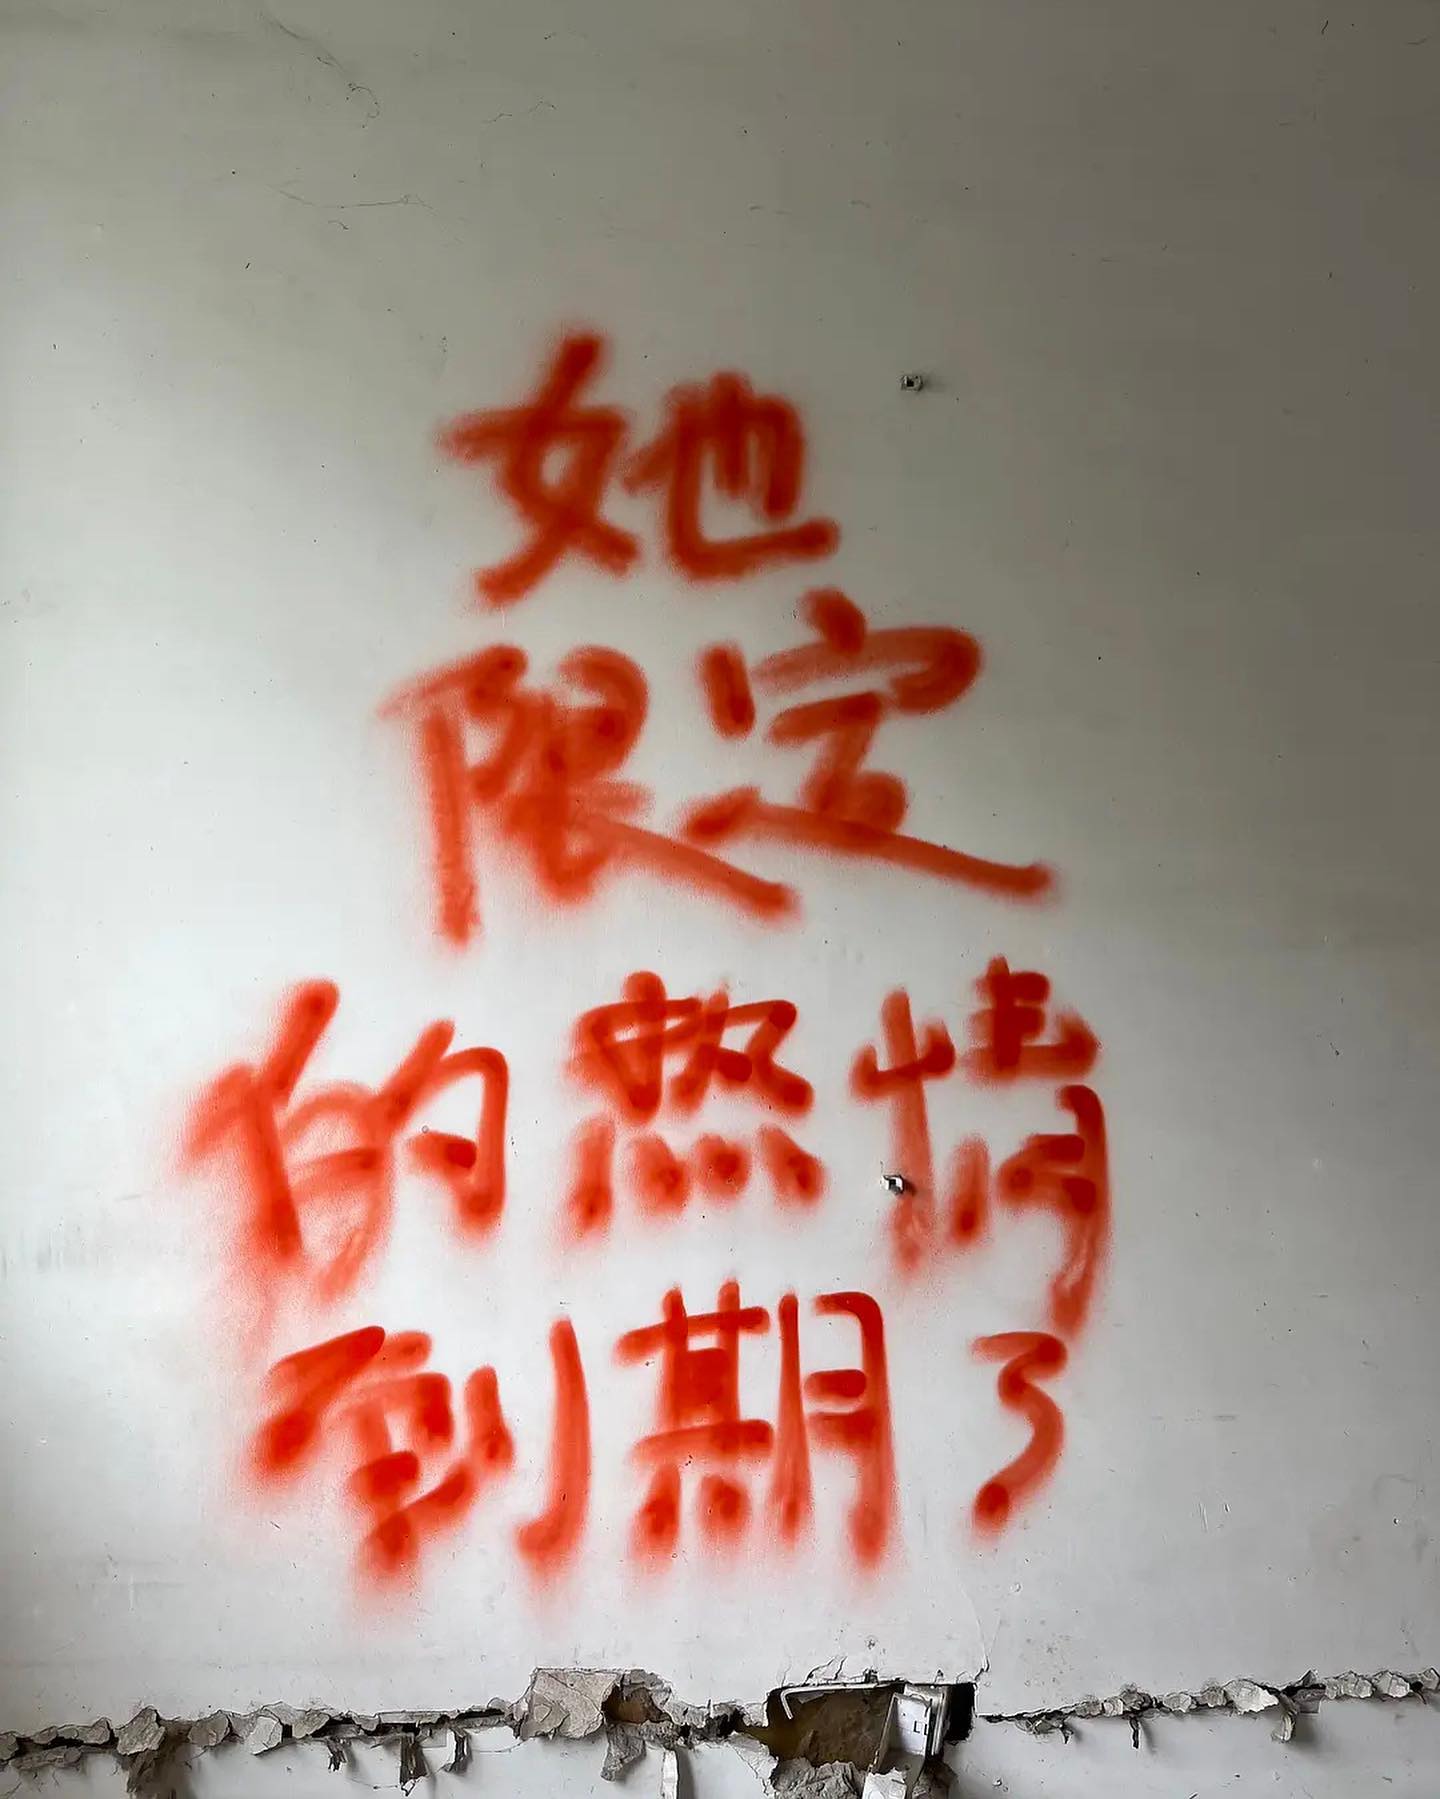 她
限定
的热情
到期了